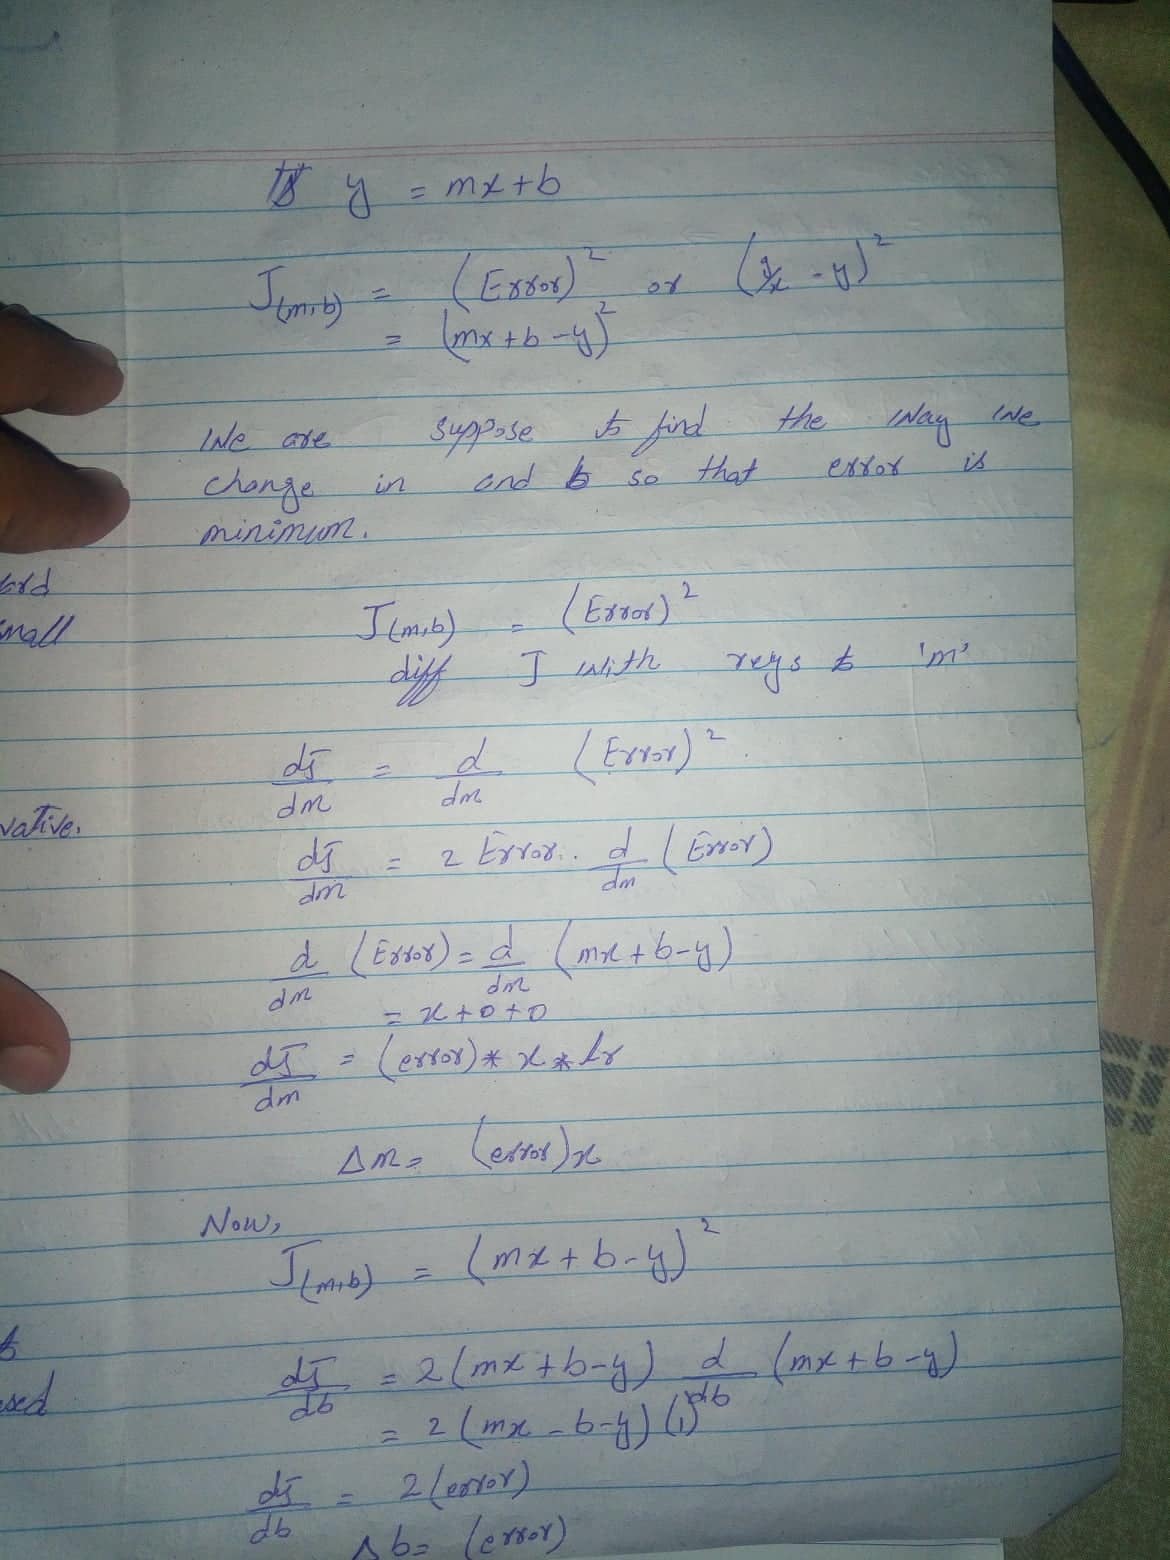 y = mx+b
J(m,b) = (Error)² or ( - y)²
= (mx+b-y)²
We are suppose to find the way we
change m and b so that error is
minimum.
J(m,b) = (Error)²
diff J with to 'm'
mall
dJ/dm = d/dm (Error)².
vative.
dJ/dm = 2 Error. d/dm (Error)
d/dm (Error) = d/dm (mx+b-y)
= x+0+0
dJ/dm = (error)*x*Lr
Δm= (error)x
Now,
J(m,b) = (mx+b-y)²
dJ/db = 2(mx+b-y) d/db (mx+b-y)
= 2(mx-b-y)(1)
dJ/db = 2(error)
Δb= (error)